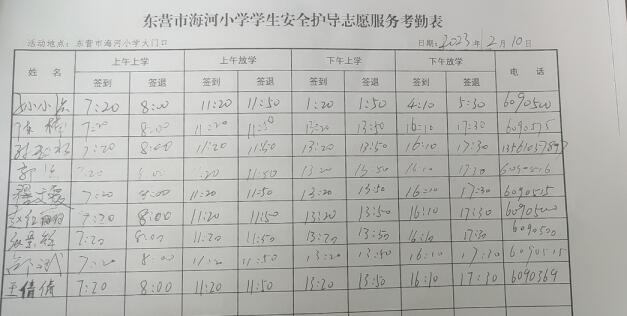 东营市海河小学学生安全护导志愿服务考勤表
活动地点：东营市海河小学大门口 日期：2023年2月10日
姓名 上午上学 上午放学 下午上学 下午放学 电话
签到 签退 签到 签退 签到 签退 签到 签退
7:20 8:00 11:20 11:50 1:20 1:50 4:10 5:30 6090500
7:20 8:00 11:20 11:50 13:20 13:50 16:10 17:30 6090515
7:20 8:00 11:20 11:50 13:20 13:50 16:10 17:30
7:20 8:00 11:20 11:50 13:20 13:50 16:10 17:30 6090516
7:20 8:00 11:20 11:50 13:20 13:50 16:10 17:30 6090515
7:20 8:00 11:20 11:50 13:20 13:50 16:10 17:30 6090500
7:20 8:00 11:20 11:50 13:20 13:50 16:10 17:30 6090500
7:20 8:00 11:20 11:50 13:20 13:50 16:10 17:30 6090515
王倩倩 7:20 8:00 11:20 11:50 13:20 13:50 16:10 17:30 6090369